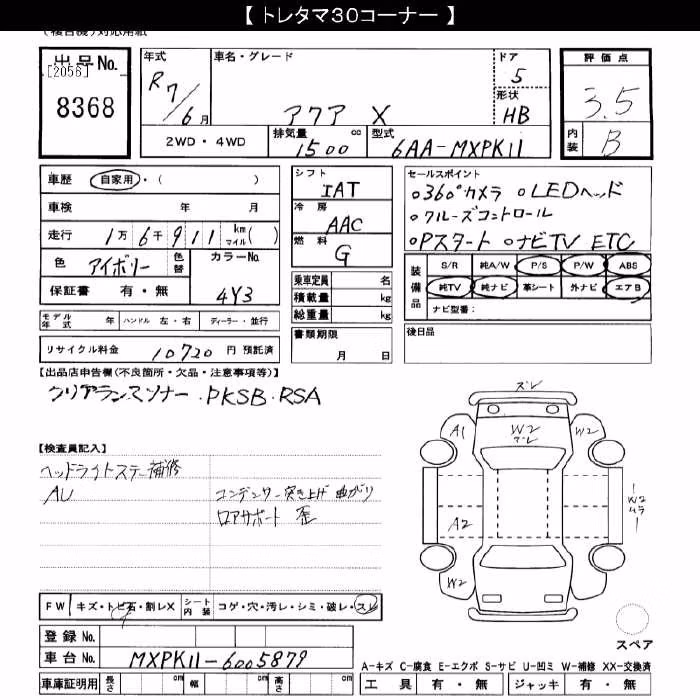 【 トレタマ30コーナー 】
(複合機)対応用紙
出品No. [2056] 8368
年式 R7/6月
車名・グレード アクア X
ドア 5
形状 HB
評価点 3.5
内装 B
2WD・4WD 排気量 1500 cc 型式 6AA-MXPK11
車歴 自家用・( )
車検 年 月
走行 1万6千911 km マイル( )
色 アイボリー 色替 カラーNo. 4Y3
保証書 有・無
シフト IAT
冷房 AAC
燃料 G
セールスポイント
○360°カメラ ○LEDヘッド
○クルーズコントロール
○Pスタート ○ナビTV ETC
装備品 S/R 純A/W P/S P/W ABS
純TV 純ナビ 革シート 外ナビ エアB
ナビ型番:
乗車定員 名
積載量 kg
総重量 kg
モデル年式 年 ハンドル 左・右 ディーラー・並行
書類期限 月 日
後日品
リサイクル料金 10720 円 預託済
【出品店申告欄(不良箇所・欠品・注意事項等)】
クリアランスソナー・PKSB・RSA
【検査員記入】
ヘッドライトステー補修
AU
コンデンサー突き上げ曲がり
ロアサポート 歪
ズレ
A1 W2 ズレ W2
W2 ムラ
A2
W2 W2
FW キズ・トビ石・割レX シート内装 コゲ・穴・汚レ・シミ・破レ・スレ
スペア
登録No.
車台No. MXPK11-6005879
車庫証明用 長さ cm 幅 cm 高さ cm
A-キズ C-腐食 E-エクボ S-サビ U-凹ミ W-補修 XX-交換済
工具 有・無 ジャッキ 有・無